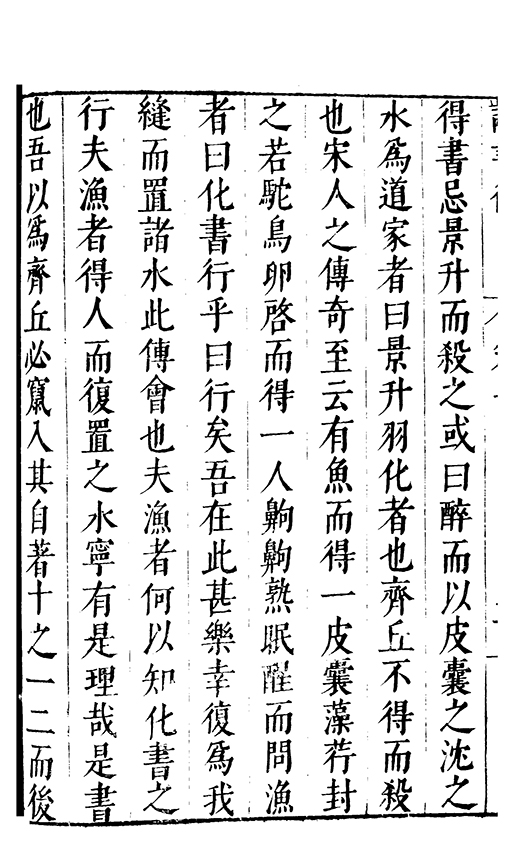 得書忌景升而殺之或曰醉而以皮囊之沈之
水爲道家者曰景升羽化者也齊丘不得而殺
也宋人之傳奇至云有魚而得一皮囊藻荇封
之若駝鳥卵啓而得一人齁齁熟眠醒而問漁
者曰化書行乎曰行矣吾在此甚樂幸復爲我
縫而置諸水此傳會也夫漁者何以知化書之
行夫漁者得人而復置之水寧有是理哉是書
也吾以爲齊丘必竄入其自著十之一二而後